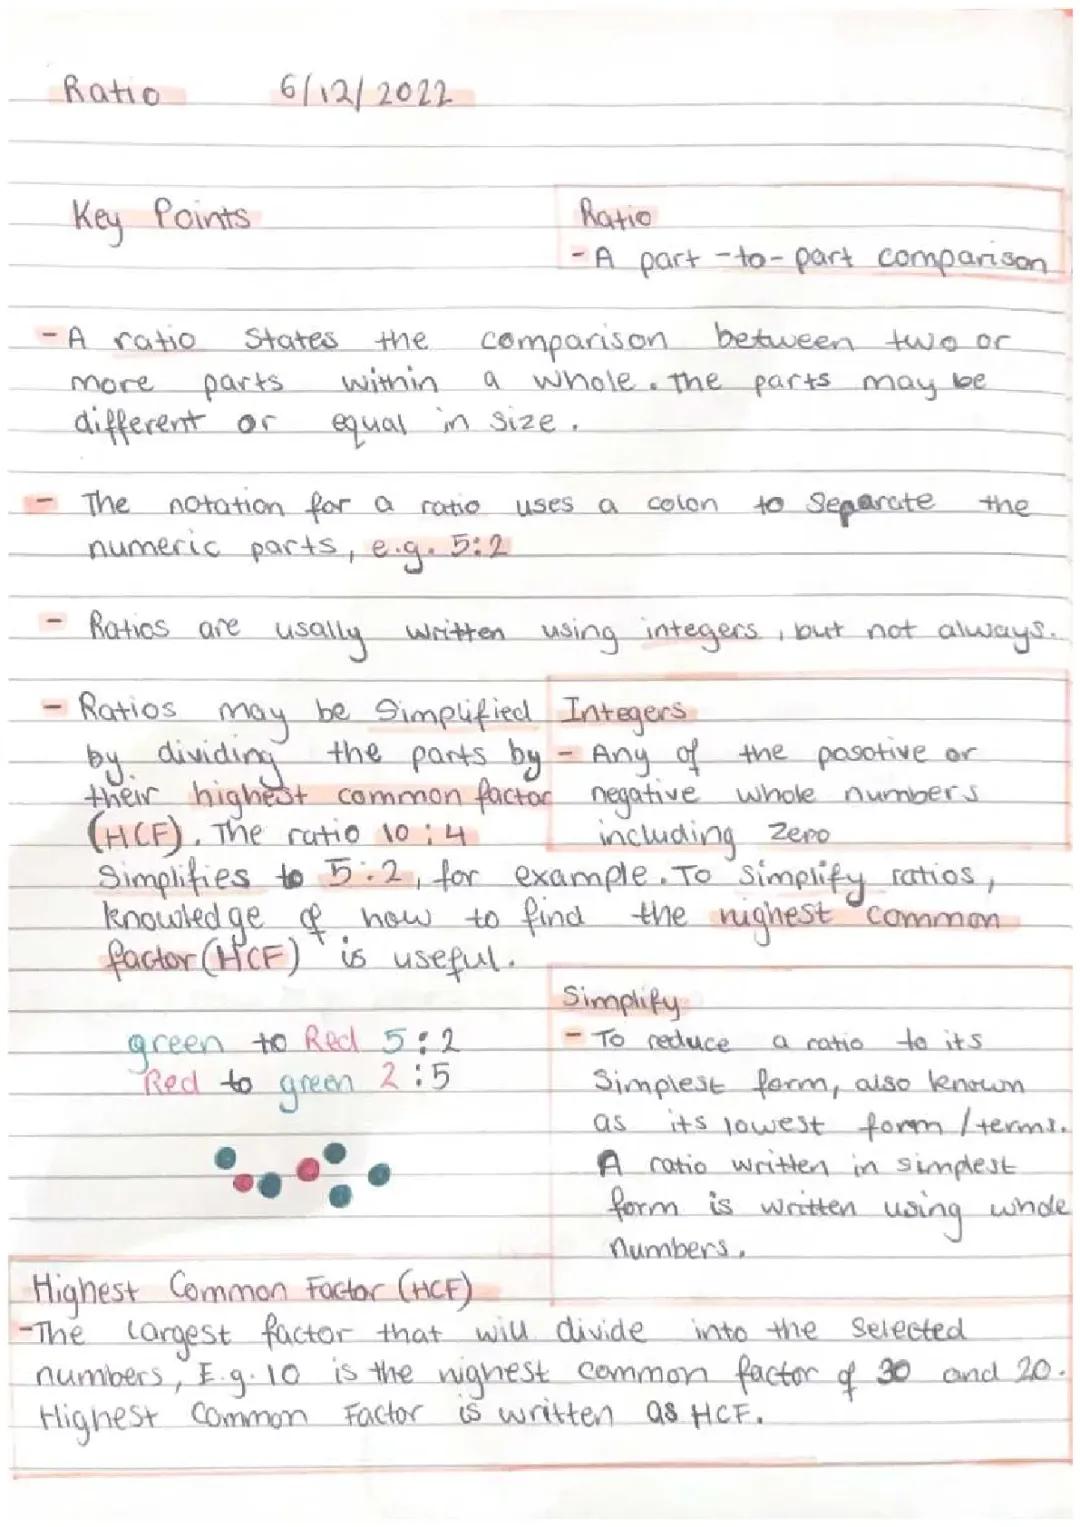 Ratio 6/12/2022
Key Points
Ratio
- A part-to-part comparison
- A ratio states the comparison between two or
more parts within a whole. The parts may be
different or equal in size.
- The notation for a ratio uses a colon to separate the
numeric parts, e.g. 5:2
- Ratios are usally written using integers, but not always.
- Ratios may be simplified
by dividing the parts by
their highest common factor
(HCF). The ratio 10:4
Simplifies to 5:2, for example. To simplify ratios,
knowledge of how to find the highest common
factor (HCF) is useful.
Integers
- Any of the posotive or
negative whole numbers
including zero
green to Red 5:2
Red to green 2:5
Simplify
- To reduce a ratio to its
Simplest form, also known
as its lowest form / terms.
A ratio written in simplest
form is written using whole
numbers.
Highest Common Factor (HCF)
- The largest factor that will divide into the selected
numbers, E.g. 10 is the highest common factor of 30 and 20.
Highest Common Factor is written as HCF.